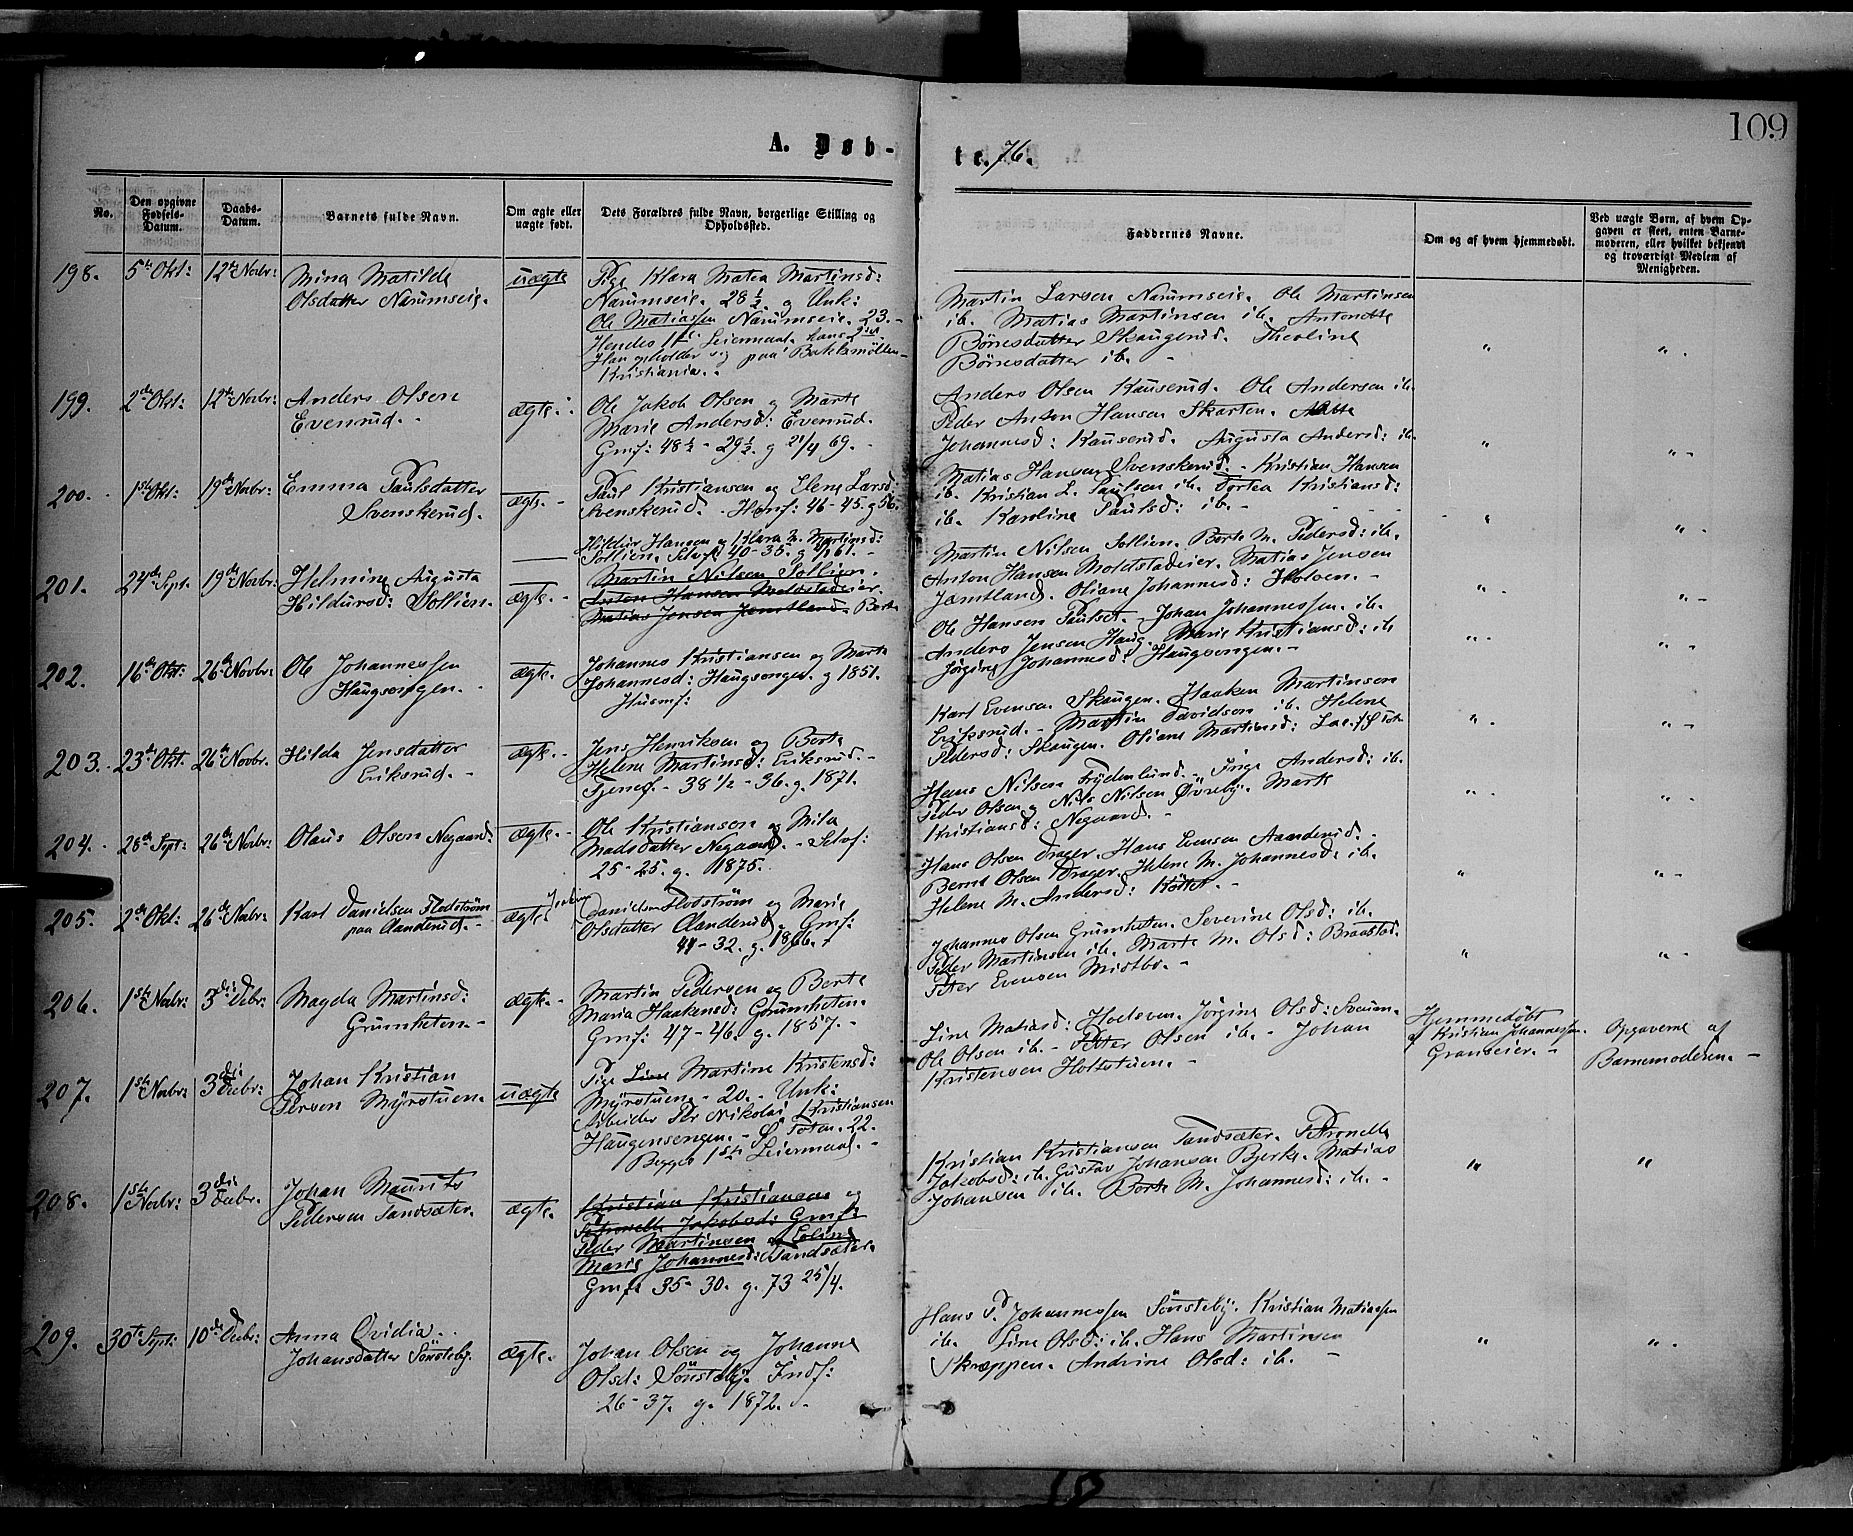 109
A. Døb-
te. 76.
No.
Den opgivne Fødsels-Datum.
Daabs-Datum.
Barnets fulde Navn.
Om ægte eller uægte født.
Dets Forældres fulde Navn, borgerlige Stilling og Opholdssted.
Faddernes Navne.
Om og af hvem hjemmedøbt.
Ved uægte Børn, af hvem Opgaven er skeet, enten Barnemoderen, eller hvilket bekjendt og troværdigt Medlem af Menigheden.
198. 5te Okt: 12te Novbr: Mina Matilde
Olsdatter Narumseie.
uægte
Pige Klara Matea Martinsd:
Narumseie. 28 1/2. og Unk:
Ole Matiassen Narumseie. 23. -
Hendes 1ste Leiermaal, hans 2det
Han opholder sig paa Bakelsmøllen -
Kristiania. -
Martin Larsen Narumseie. Ole Martinsen
ib. Matias Martinsen ib. Antonette
Børresdatter Skaugerud. Theoline
Børresdatter ib. -
" " -
199. 2den Okt: 12te Novbr: Anders Olsen
Evenrud. -
ægte. -
Ole Jakob Olsen og Marte
Marie Andersd: Evenrud.
Gmf: 48 1/2 - 29 1/2. g 21/4 69. -
Anders Olsen Kauserud. Ole Andersen ib.
Peder Anton Hansen Skarten. Mette
Johannesd: Kauserud. Augusta Andersd: ib.
" " -
200. - 1ste Okt: 19de Novbr: Emma Paulsdatter
Svenskerud. -
ægte. -
Paul Kristiansen og Elene Larsd:
Svenskerud. - Husmf: 46 - 45. g 56.
Matias Hansen Svenskerud. - Kristian Hansen
ib. Kristian L. Paulsen ib. Dortea Kristiansd:
ib. Karoline Paulsd: ib. -
" " -
201. 24de Sept. 19de Novbr: Helmine Augusta
Hildursd: Sollien.
ægte. -
Hildur Hansen og Klara M. Martinsd:
Sollien. Selvf 40-35. g 61. -
Martin Nilsen Sollien.
Anton Hansen Moldstadeier.
Matias Jensen Jemtland. Berte
Martin Nilsen Sollien. Berte M. Pedersd: ib.
Anton Hansen Moldstadeier. Matias Jensen
Jæmtland. Oliane Johannesd: Holven. -
" - " -
202. 16de Okt: 26de Novbr: Ole Johannessen
Haugsengen. -
ægte. -
Johannes Kristiansen og Marte
Johannesd: Haugsengen. g 1851.
Husmf:
Ole Hansen Paulset. - Johan Johannessen. ib.
Anders Jensen Haug. Marie Kristiansd: ib
Jørgine Johannesd: Haugsengen. -
" - " -
203. - 23de Okt. 26de Novbr. Hilda Jensdatter
Eriksrud. -
ægte. -
Jens Henriksen og Berte
Helene Martinsd: Eriksrud. -
Tjenef. - 38 1/2 - 36. g. 1871.
Karl Evensen Skaugen. Haaken Martinsen
Eriksrud. - Martin Davidsen ib. Helene
Pedersd: Skaugen. Oliane Martinsd:
" - " -
204. - 28de Sept: 26de Novbr: Olaus Olsen Negaard.
ægte. -
Ole Kristiansen og Mila
Madsdatter Negaard. - Selvf:
25 - 25. g. 1875. -
Hans Nilsen Frydenlund. - Inge Andersd: ib.
Peder Olsen og Nils Nilsen Øvreby. Marte
Kristiansd: Negaard. -
" - " -
205. 2den Okt: 26de Novbr: Karl Danielsen Flodstrøm
paa Aanderud. -
ægte.
Daniel Flodstrøm og Marie
Olsdatter Aanderud. Gmf:
41 - 32. g. 1866. -
Hans Olsen Drager. Hans Evensen Aanderud. -
Bernt Olsen Drager. Helene M. Johannesd: ib.
Helene M. Andersd: Køttet. -
" " -
206. 1ste Novbr: 3die Debr: Magda Martinsd:
Grumheten. -
ægte. -
Martin Pedersen og Berte
Maria Haakensd: Grumheten.
Gmf: 47 - 46. g. 1857. -
Johannes Olsen Grumheten. Severine Olsd: ib.
Peder Martinsen ib. Marte M. Olsd: Braastad.
Peter Evensen Mistbr. -
" " -
207. 1ste Novbr: 3die Debr: Johan Kristian
Persen Myrstuen.
uægte
Pige Line Martine Kristensd:
Myrstuen. - 20. - Unk:
Arbeider Per Nikolai Kristiansen
Haugensengen. - Ø. Toten. 22.
Begges 1ste Leiermaal. -
Line Matiasd: Hoelsven. Jørgine Olsd: Sveum.
Ole Olsen ib. - Peter Olsen ib. - Johan
Kristensen Holtstuen. -
Hjemmedøbt
af Kristian Johannessen.
Granseier. -
Opgaverne af
Barnemoderen. -
208. 1ste Novbr: 3die Debr. Johan Maurits
Pedersen Sandsæter.
ægte.
Kristian Kristiansen og
Petronelle Jakobsd: Gmf:
Peder Martinsen og Eoline
Marie Johannesd: Sandsæter.
Gmf: 35 - 30. g. 73 25/4.
Kristian Kristiansen Sandsæter. Petronelle
Jakobsd: ib. Gustav Johansen Bjerke. Matias
Johansen ib. Berte M. Johannesd: ib. -
" "
209. 30te Sept: 10de Debr: Anna Ovidia. -
Johansdatter Sønsteby.
ægte.
Johan Olsen og Johanne
Olsd: Sønsteby. Indf:
26 - 37. g. 1872. -
Hans P. Johannessen Sønsteby. Kristian Matiassen
ib. Line Olsd: ib. Hans Martinsen
Skræppen. Andrine Olsd: ib. -
" " -